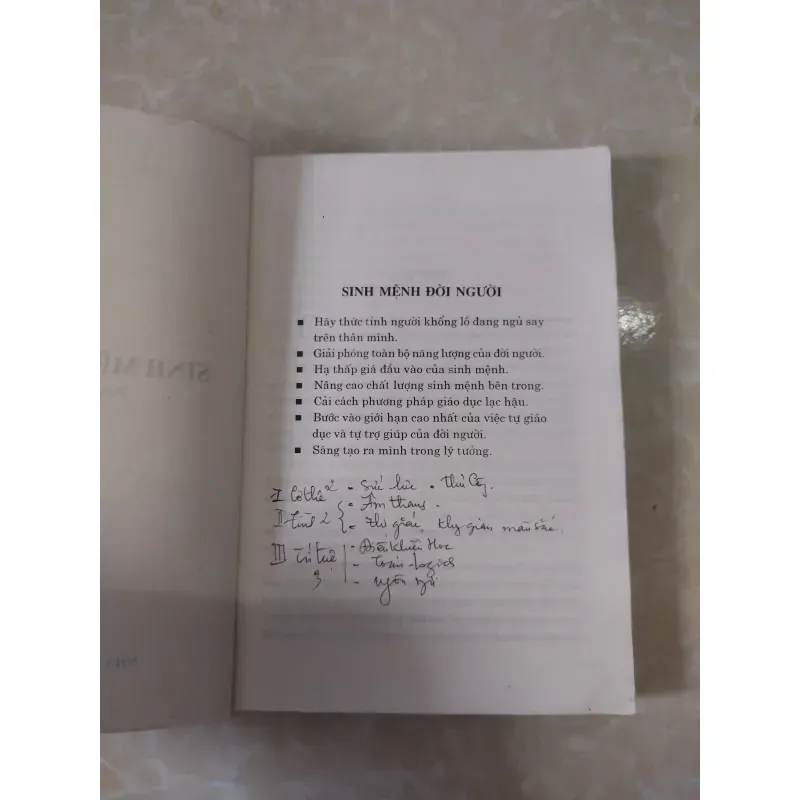 SINH MỆNH ĐỜI NGƯỜI
Hãy thức tỉnh người khổng lồ đang ngủ say
trên thân mình.
Giải phóng toàn bộ năng lượng của đời người.
Hạ thấp giá đầu vào của sinh mệnh.
Nâng cao chất lượng sinh mệnh bên trong.
Cải cách phương pháp giáo dục lạc hậu.
Bước vào giới hạn cao nhất của việc tự giáo
dục và tự trợ giúp của đời người.
Sáng tạo ra mình trong lý tưởng.
I Cơ thể 2 - Sức lực - Thủ
II 2 - Âm thanh.
- Thị giác, màu sắc.
III Trí tuệ - Điều khiển Học
3 - Toán - Logics
- Ngôn ngữ
SINH M